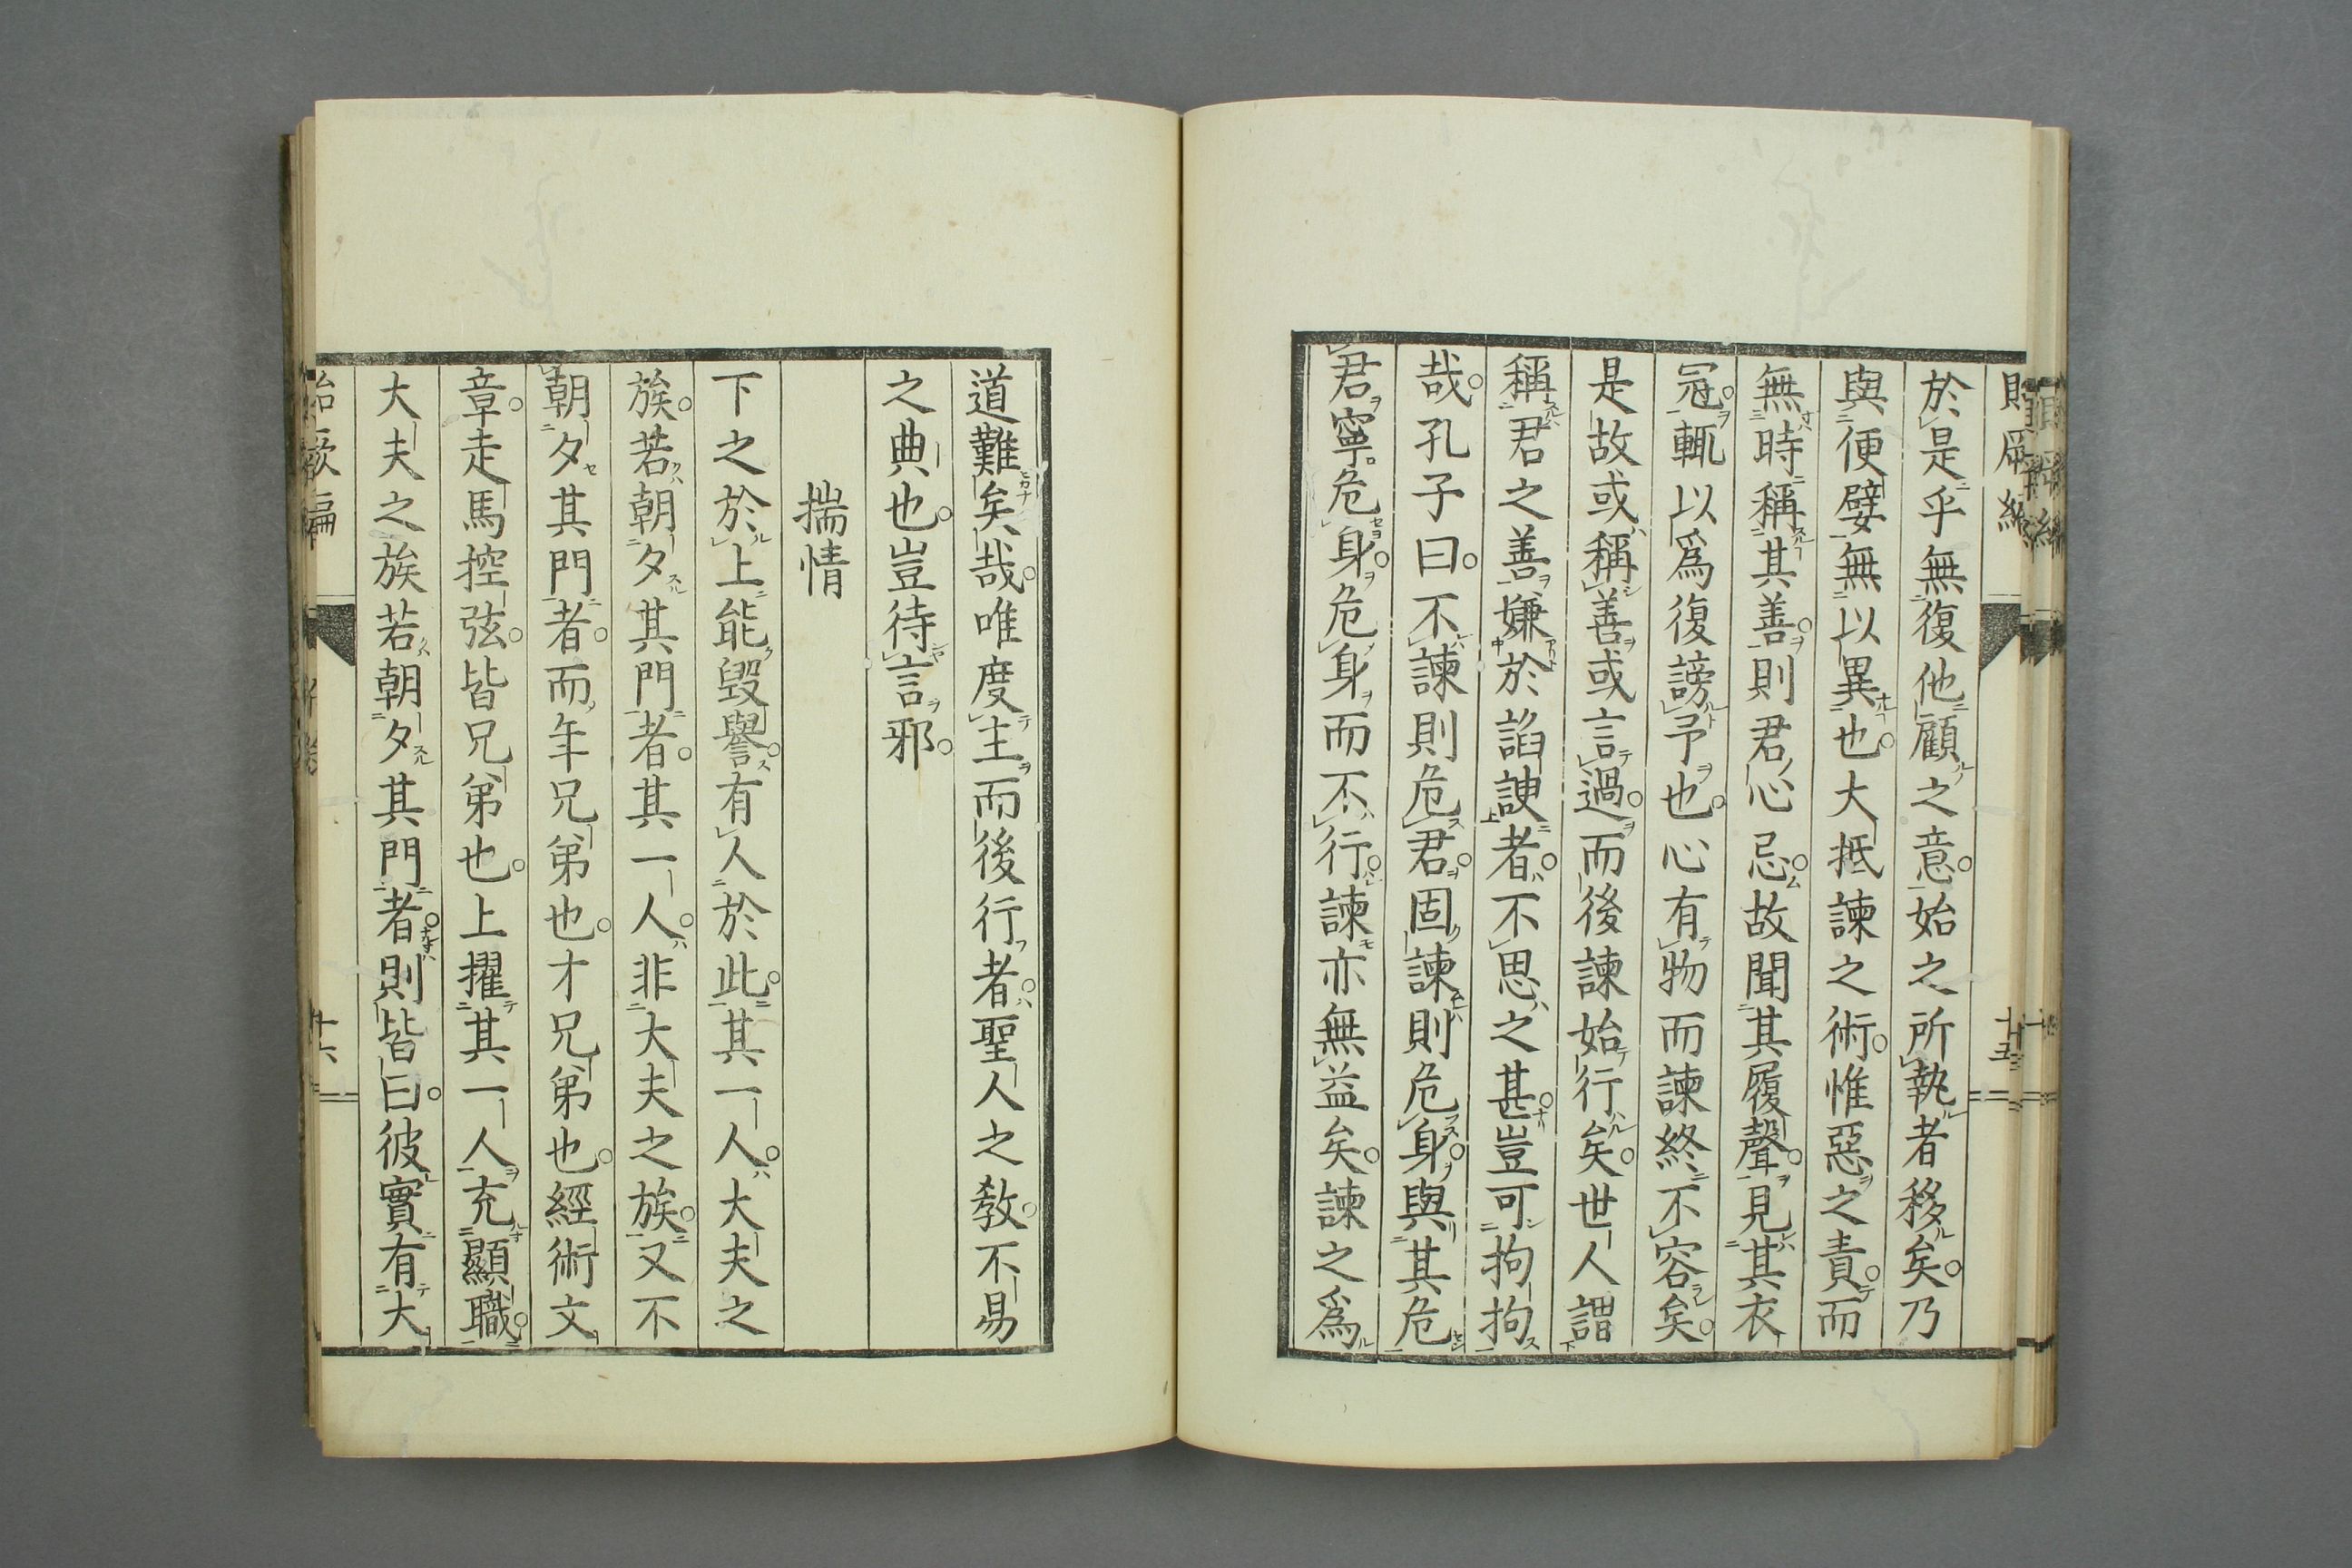 於是乎無復他顧之意始之所執者移矣乃
與便嬖無以異也大抵諫之術惟惡之責而
無時稱其善則君心忌故聞其履聲見其衣
冠輒以爲復謗予也心有物而諫終不容矣
是故或稱善或言過而後諫始行矣世人謂
稱君之善嫌於諂諛者不思之甚豈可拘拘
哉孔子曰不諫則危君固諫則危身與其危
君寧危身危身而不行諫亦無益矣諫之爲
道難矣哉唯度主而後行者聖人之教不易
之典也豈待言邪
揣情
下之於上能毀譽有人於此其一人大夫之
族若朝夕其門者其一人非大夫之族又不
朝夕其門者而年兄弟也才兄弟也經術文
章走馬控弦皆兄弟也上擢其一人充顯職
大夫之族若朝夕其門者則皆曰彼實有大